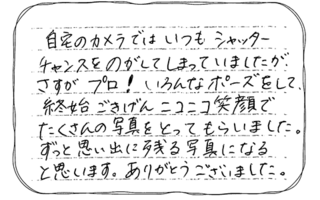 自宅のカメラでは いつも シャッター
チャンスを のがしてしまっていましたが、
さすが プロ! いろんなポーズをして、
終始 ごきげん ニコニコ 笑顔で
たくさんの写真をとってもらいました。
ずっと思い出に残る写真になる
と思います。ありがとうございました。